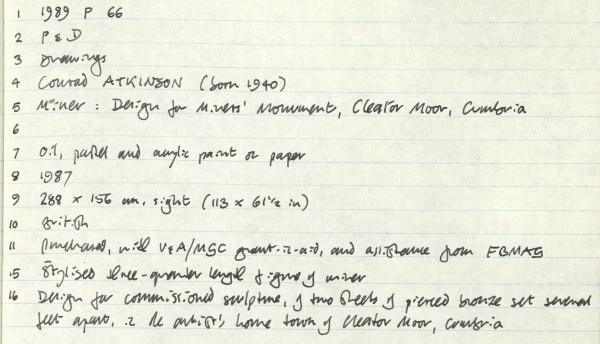 1 1989 P 66
2 P & D
3 Drawings
4 Conrad ATKINSON (born 1940)
5 Miner : Design for Miners' Monument, Cleator Moor, Cumbria
6
7 Oil, pastel and acrylic paint on paper
8 1987
9 288 x 156 cm, sight (113 x 61½ in)
10 British
11 Purchased, with V&A/MGC grant-in-aid, and assistance from FBMAG
15 Stylised three-quarter length figure of miner
16 Design for commissioned sculpture, of two sheets of pierced bronze set several
feet apart, in the artist's home town of Cleator Moor, Cumbria